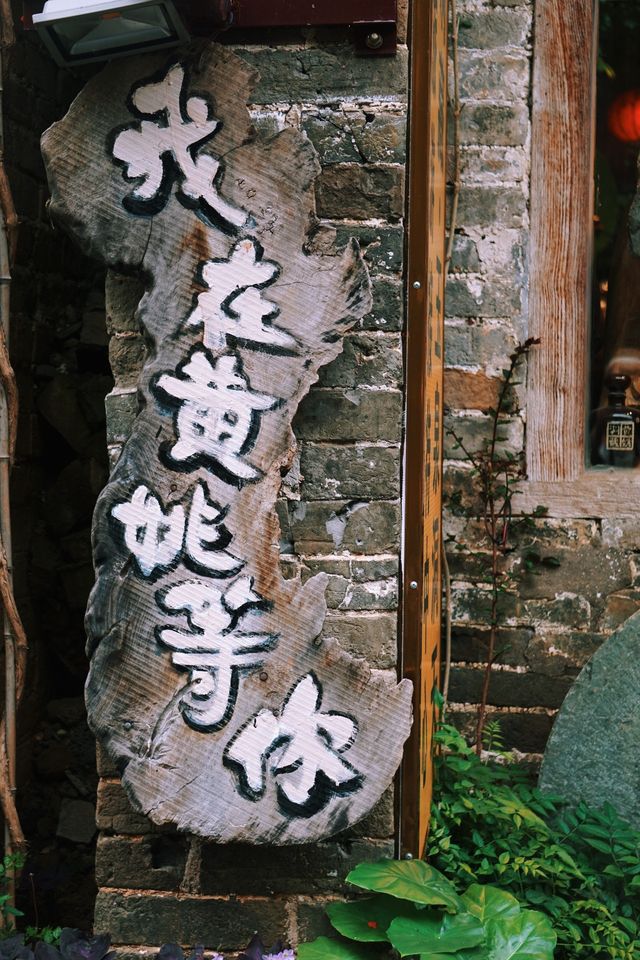 我在黄姚等你